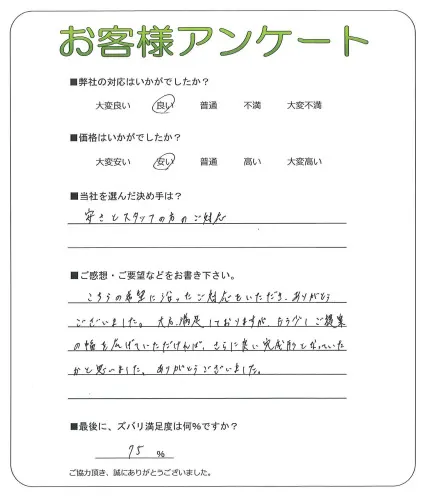 お客様アンケート
■弊社の対応はいかがでしたか？
大変良い 良い 普通 不満 大変不満
■価格はいかがでしたか？
大変安い 安い 普通 高い 大変高い
■当社を選んだ決め手は？
安さとスタッフの方のご対応
■ご感想・ご要望などをお書き下さい。
こちらの希望に沿ったご対応をいただき、ありがとう
ございました。大方満足しておりますが、もう少しご提案
の幅を広げていただければ、さらに良い完成形となっていた
かと思いました。ありがとうございました。
■最後に、ズバリ満足度は何%ですか？
75 %
ご協力頂き、誠にありがとうございました。